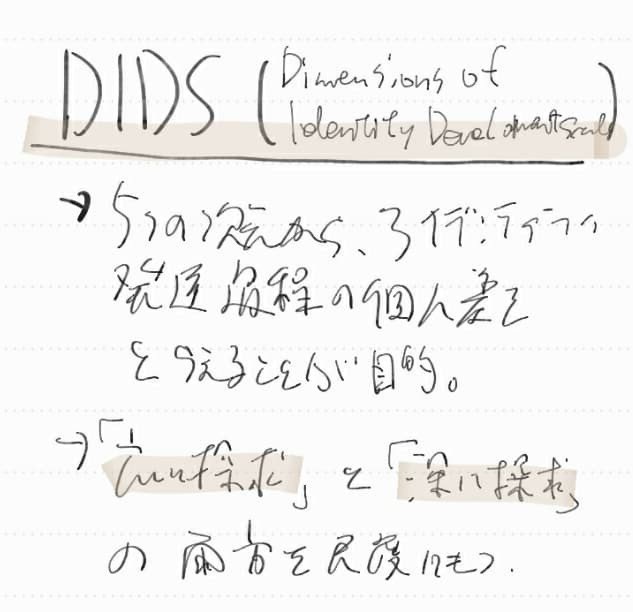 DIDS (Dimensions of
Identity Development Scale)
→ 5つの次元から、アイデンティティ
発達過程の個人差を
とらえることが目的。
→「広い探求」と「深い探求」
の両方を尺度にもつ.